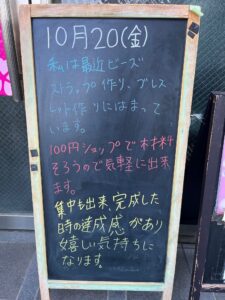 10月20(金)
私は最近ビーズ
ストラップ作り、ブレス
レット作りにはまって
います。
100円ショップで材料
そろうので気軽に出来
ます。
集中も出来、完成した
時の達成感があり
嬉しい気持ちに
なります。